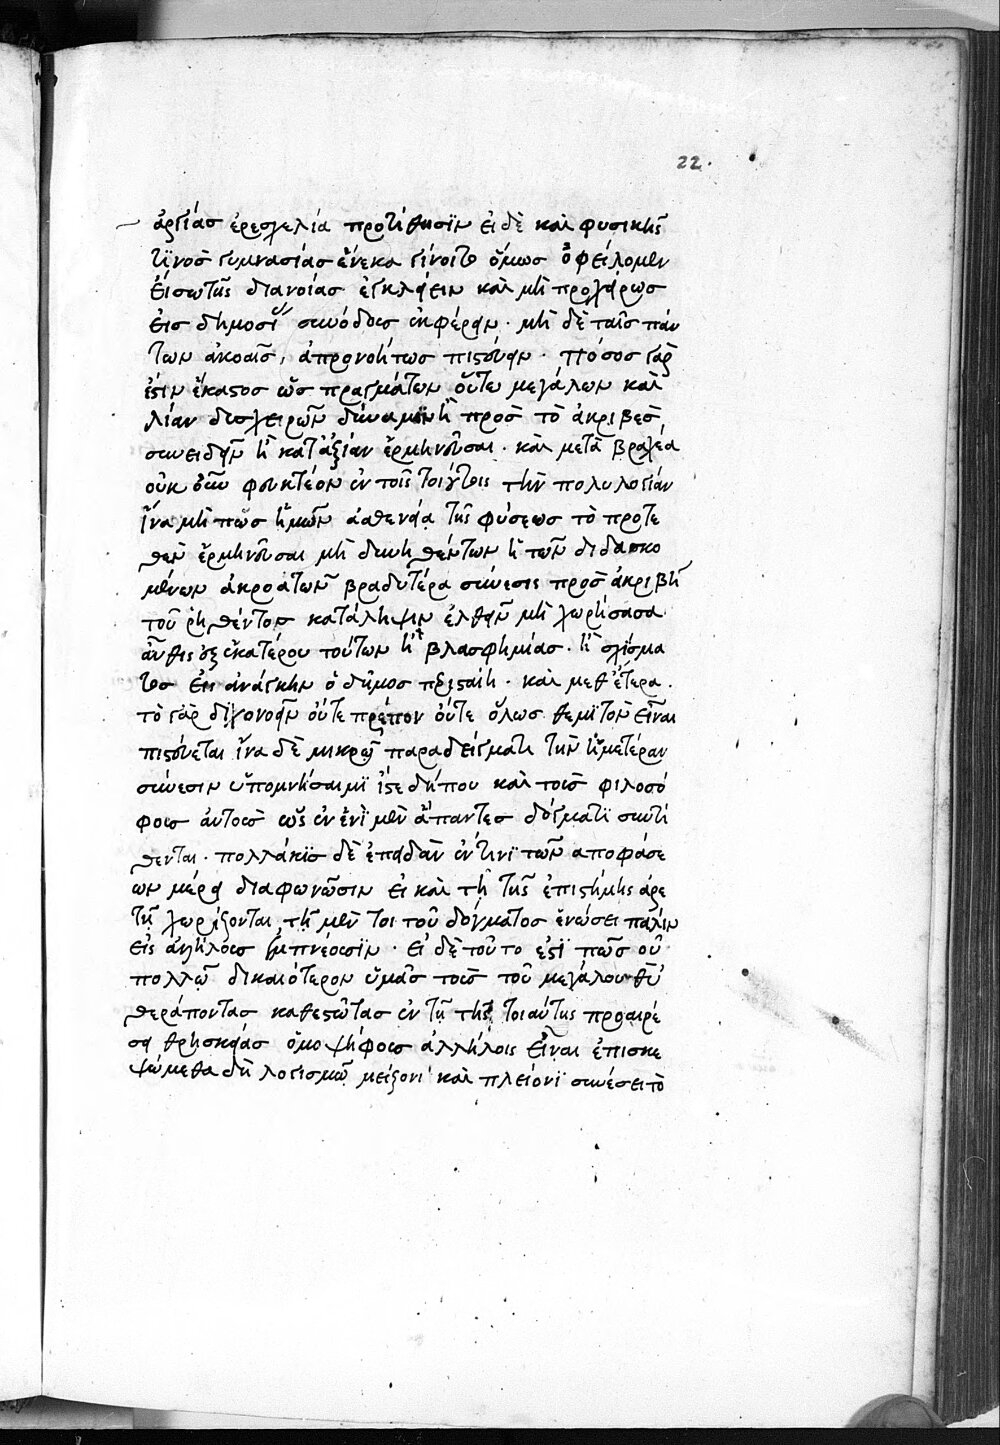 22.
ἀργίας ἐρεσχελία προτίθησϊν εἰ δὲ καὶ φυσικῆς
τϊνος γυμνασίας ἕνεκα γίνοιτο ὅμως ὀφείλομεν
εἴσω τῆς διανοίας ἐγκλείειν καὶ μὴ προχείρως
εἰς δημοσί συνόδους ἐκφέρειν · μὴ δὲ ταῖς πάν
των ἀκοαῖς, ἀπρονοήτως πιστεύειν · πόσος γὰρ
ἐστιν ἕκαστος ὡς πραγμάτων οὕτω μεγάλων καὶ
λίαν δυσχειρῶν δύναμιν ἢ πρὸς τὸ ἀκριβὲς
συνειδεῖν ἢ κατ ἀξίαν ἑρμηνεῦσαι · καὶ μετὰ βραχέα
οὐκ οὖν φευκτέον ἐν τοῖς τοιούτοις τὴν πολυλογίαν
ἵνα μὴ πως ἡμῶν ἀσθενεία τῆς φύσεως τὸ προτε
θὲν ἑρμηνεῦσαι μὴ δυνηθέντων ἢ τῶν διδασκο
μένων ἀκροατῶν βραδυτέρα σύνεσις πρὸς ἀκριβῆ
τοῦ ῥηθέντος κατάληψιν ἐλθεῖν μὴ χωρήσασα
αὖθις ἐξ ἑκατέρου τούτων ἢ βλασφημίας · ἢ σχίσμα
τος εἰς ἀνάγκην ὁ δῆμος περισταίη · καὶ μεθ ἕτερα ·
τὸ γὰρ διχονοεῖν οὔτε πρέπον οὔτε ὅλως θεμϊτὸν εἶναι
πιστεύεται ἵνα δὲ μικρῷ παραδείγματι τὴν ἡμετέραν
σύνεσιν ὑπομνήσαιμϊ ἴστε δήπου καὶ τοὺς φιλοσό
φους αὐτοὺς ὡς ἐν ἑνὶ μὲν ἅπαντες δόγματϊ συντί
θενται · πολλάκϊς δὲ ἐπειδὰν ἔν τινϊ τῶν ἀποφάσε
ων μέρει διαφωνῶσιν εἰ καὶ τῇ τῆς ἐπιστήμης ἀρε
τῇ χωρίζονται, τῇ μέν τοι τοῦ δόγματος ἑνώσει πάλιν
εἰς ἀλλήλους συμπνέουσϊν · εἰ δὲ τοῦτο ἐστϊ πῶς οὐ
πολλῷ δικαιότερον ὑμᾶς τοὺς τοῦ μεγάλου θυ
θεράποντας καθεστῶτας ἐν τῇ τῆς τοιαύτης προαιρέ
σει θρησκείας ὁμοψήφους ἀλλήλοις εἶναι ἐπισκε
ψώμεθα δὴ λογισμῷ μείζονι καὶ πλείονϊ συνέσει τὸ